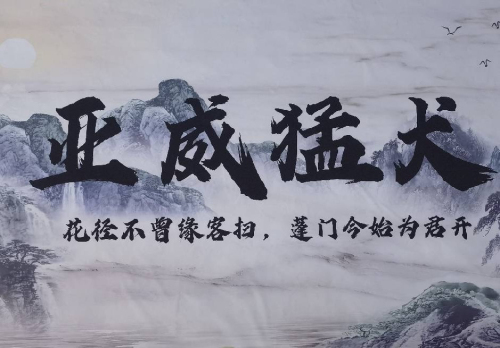 亚威猛犬
花径不曾缘客扫，蓬门今始为君开